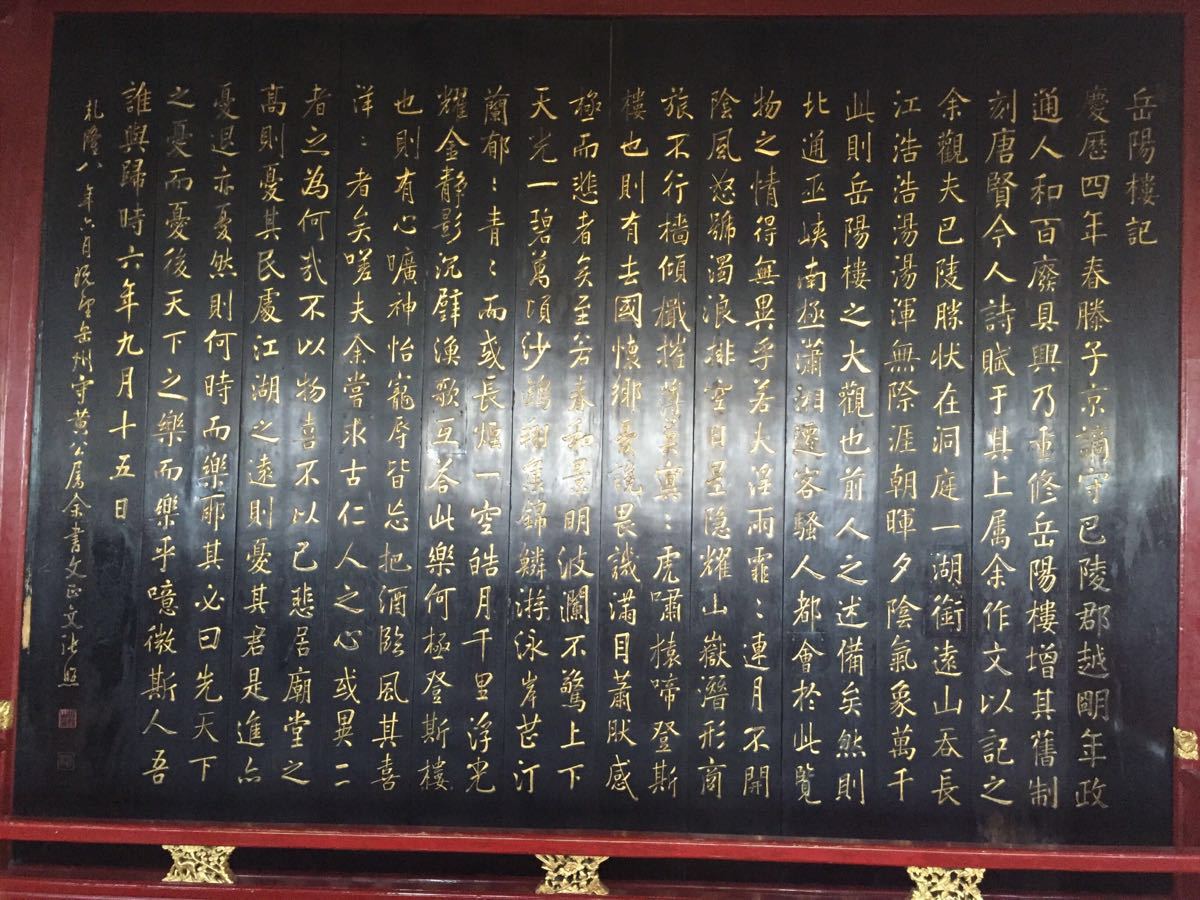 岳陽樓記
慶歴四年春滕子京謫守巴陵郡越明年政
通人和百廢具興乃重修岳陽樓增其舊制
刻唐賢今人詩賦于其上属余作文以記之
余觀夫巴陵勝状在洞庭一湖銜遠山吞長
江浩浩湯湯渾無際涯朝暉夕陰氣象萬千
此則岳陽樓之大觀也前人之述備矣然則
北通巫峽南極瀟湘遷客騷人都會於此覽
物之情得無異乎若夫淫雨霏〻連月不開
陰風怒號濁浪排空日星隐耀山嶽潛形商
旅不行檣傾檝摧薄莫冥〻虎嘯猿啼登斯
樓也則有去國懷鄉憂讒畏譏滿目蕭然感
極而悲者矣至若春和景明波瀾不驚上下
天光一碧萬頃沙鷗翔集錦鱗游泳岸芷汀
蘭郁〻青〻而或長煙一空皓月千里浮光
耀金静影沉璧漁歌互答此樂何極登斯樓
也則有心曠神怡寵辱皆忘把酒臨風其喜
洋〻者矣嗟夫余嘗求古仁人之心或異二
者之為何哉不以物喜不以己悲居廟堂之
高則憂其民處江湖之遠則憂其君是進亦
憂退亦憂然則何時而樂耶其必曰先天下
之憂而憂後天下之樂而樂乎噫微斯人吾
誰與歸時六年九月十五日
乾隆八年六月既望岳州守黃公屬余書文正文張照